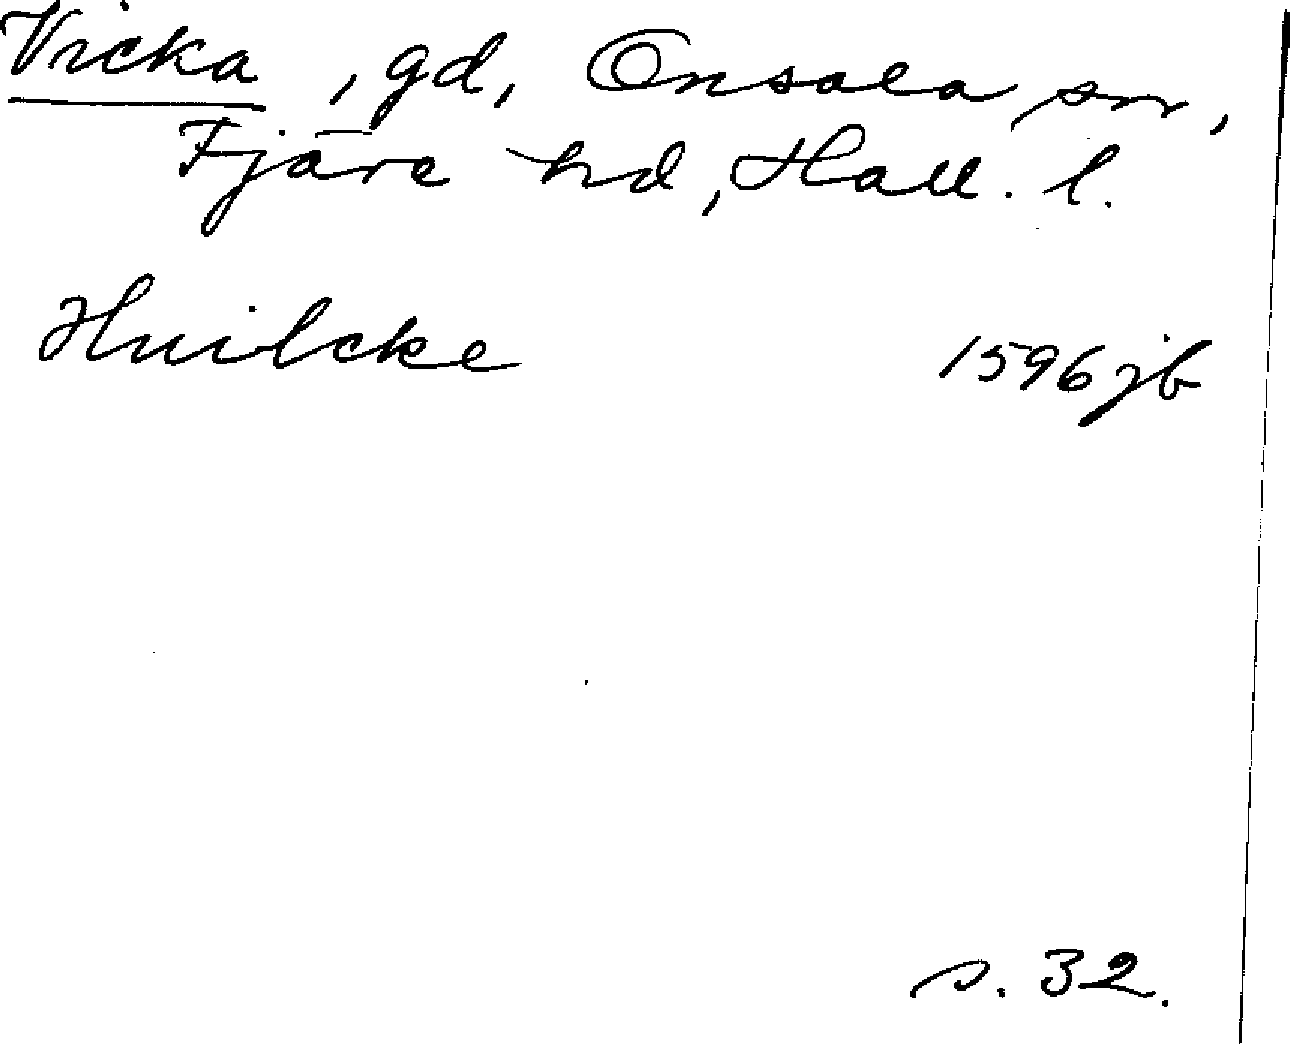 Vicka, gd, Onsala sn,
Fjäre hd, Hall. l.
Huilcke 1596 jb
s. 32.